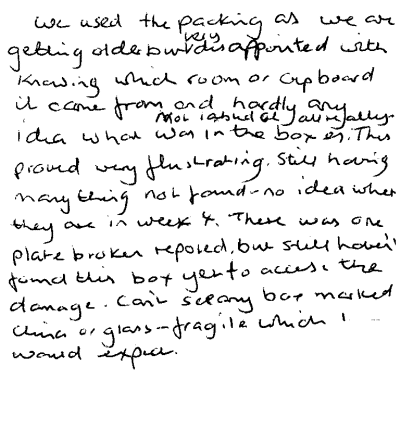 we used the packing as we are
getting older but very disappointed with
knowing which room or cupboard
it came from and hardly any
idea what was in the box es. This
Not labeled
proved very flustrating. Still having
many thing not found - no idea wher
they are in week 4. There was one
plate broken reposed, but still haven'
found this box yet to access the
damage. Can't see any box marked
china or glass - fragile which I
would expect.